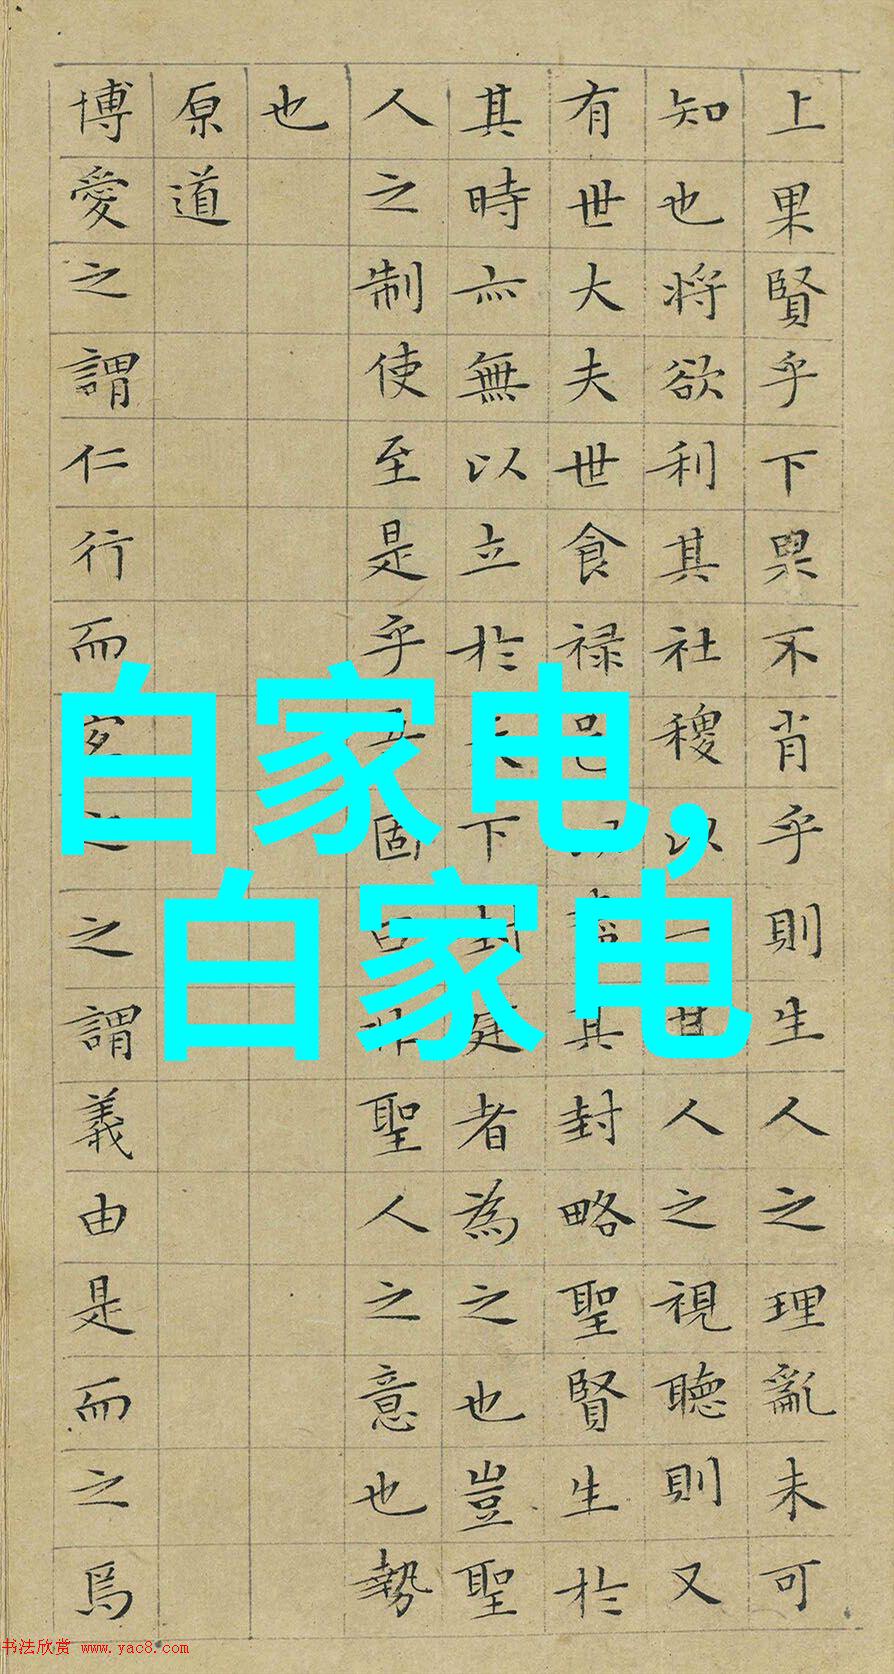 上果賢乎下果不肖乎則生人之理亂未可
知也将欲利其社稷以一其人之視聽則又
有世大夫世食禄邑以其封略聖賢生於
其時亦無以立於天下封建者為之也豈聖
人之制使至是乎吾固曰非聖人之意也勢
也
原道
博愛之謂仁行而宜之之謂義由是而之焉
白家电,
白家电
书法欣赏 www.yac8.com